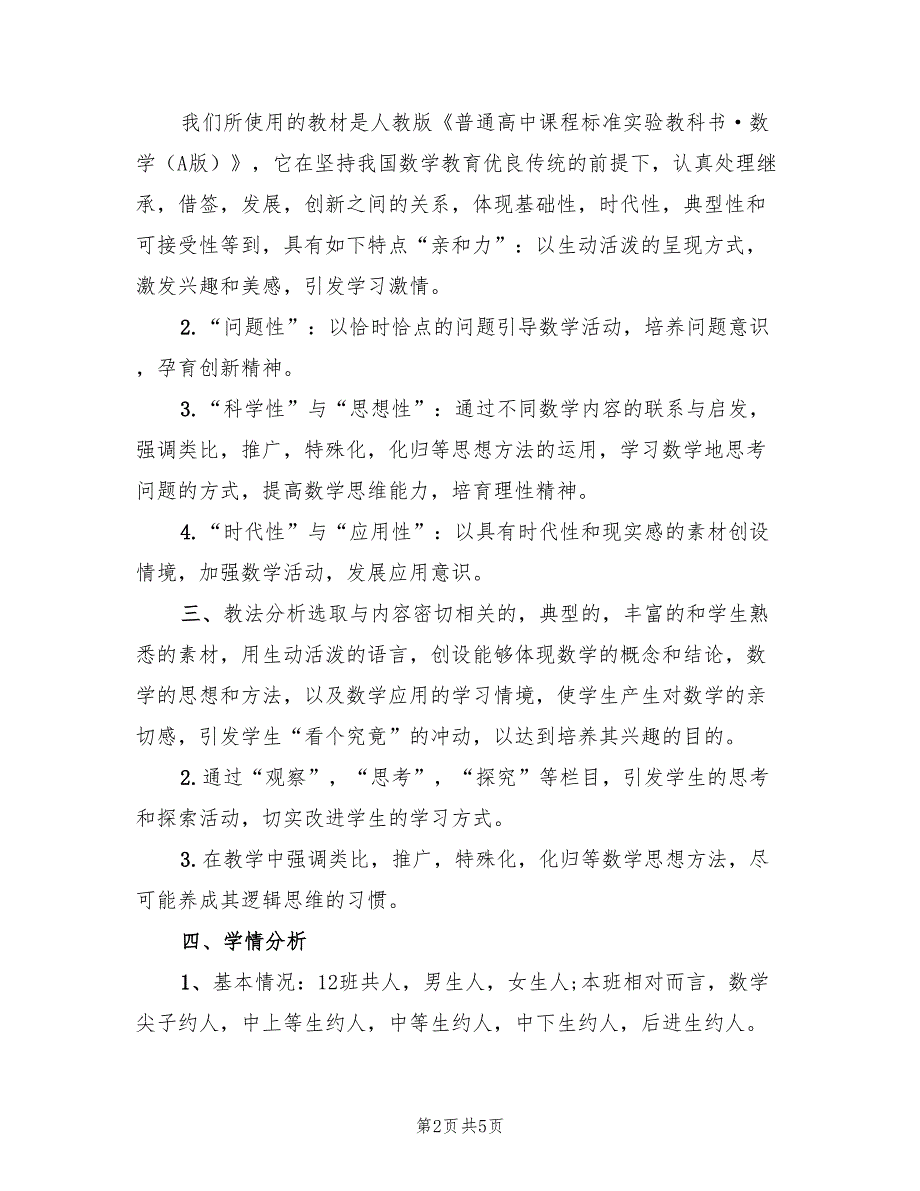 我们所使用的教材是人教版《普通高中课程标准实验教科书·数
学（A版）》，它在坚持我国数学教育优良传统的前提下，认真处理继
承，借签，发展，创新之间的关系，体现基础性，时代性，典型性和
可接受性等到，具有如下特点“亲和力”：以生动活泼的呈现方式，
激发兴趣和美感，引发学习激情。
2.“问题性”：以恰时恰点的问题引导数学活动，培养问题意识
，孕育创新精神。
3.“科学性”与“思想性”：通过不同数学内容的联系与启发，
强调类比，推广，特殊化，化归等思想方法的运用，学习数学地思考
问题的方式，提高数学思维能力，培育理性精神。
4.“时代性”与“应用性”：以具有时代性和现实感的素材创设
情境，加强数学活动，发展应用意识。
三、教法分析选取与内容密切相关的，典型的，丰富的和学生熟
悉的素材，用生动活泼的语言，创设能够体现数学的概念和结论，数
学的思想和方法，以及数学应用的学习情境，使学生产生对数学的亲
切感，引发学生“看个究竟”的冲动，以达到培养其兴趣的目的。
2.通过“观察”，“思考”，“探究”等栏目，引发学生的思考
和探索活动，切实改进学生的学习方式。
3.在教学中强调类比，推广，特殊化，化归等数学思想方法，尽
可能养成其逻辑思维的习惯。
四、学情分析
1、基本情况：12班共人，男生人，女生人;本班相对而言，数学
尖子约人，中上等生约人，中等生约人，中下生约人，后进生约人。
第2页共5页